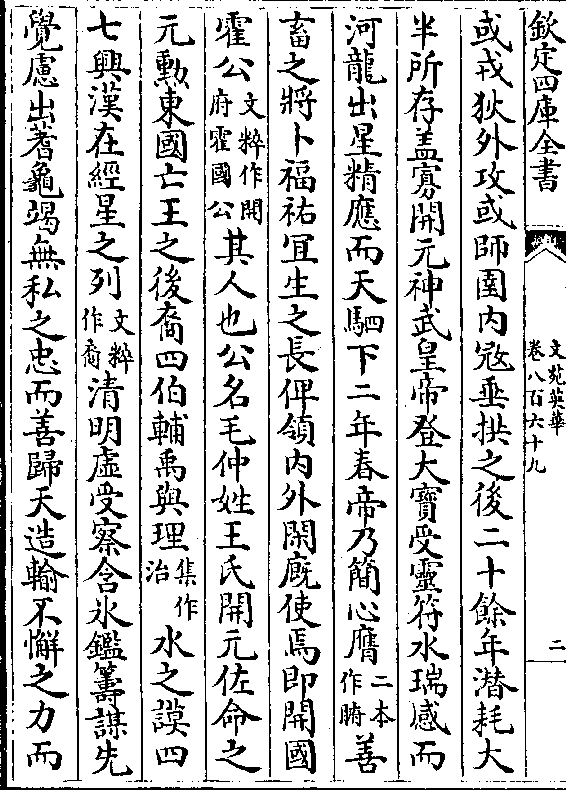 欽定四庫全書
文苑英華
卷八百六十九
二
或戎狄外攻或師圉内㓂垂拱之後二十餘年潜耗大
半所存盖寡開元神武皇帝登大寳受靈符水瑞感而
河龍出星精應而天駟下二年春帝乃簡心膺二本作膂善
畜之將卜福祐宜生之長俾領内外閑廐使焉即開國
霍公文粹作開府霍國公其人也公名毛仲姓王氏開元佐命之
元勲東國亡王之後裔四伯輔禹與理集作治水之謨四
七興漢在經星之列文粹作裔清明虚受察含氷鑑籌謀先
覺慮出蓍龜竭無私之忠而善歸天造輸不懈之力而